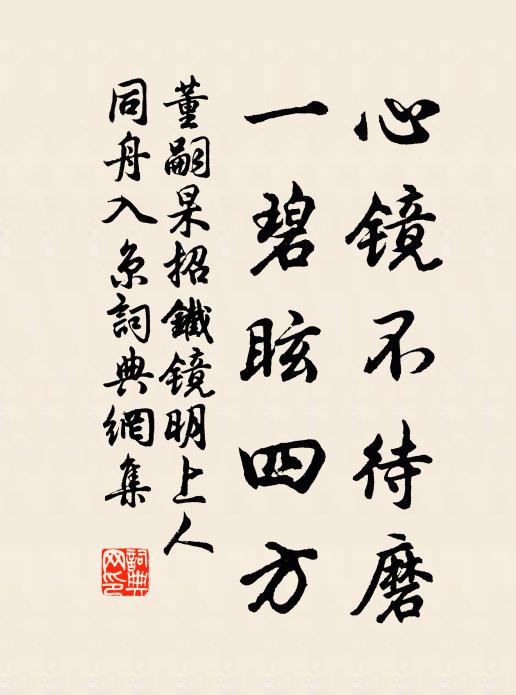 心镜不待磨
一碧眩四方
董嗣杲招鐵镜明上人
同舟入京詞典網集
詞典网印